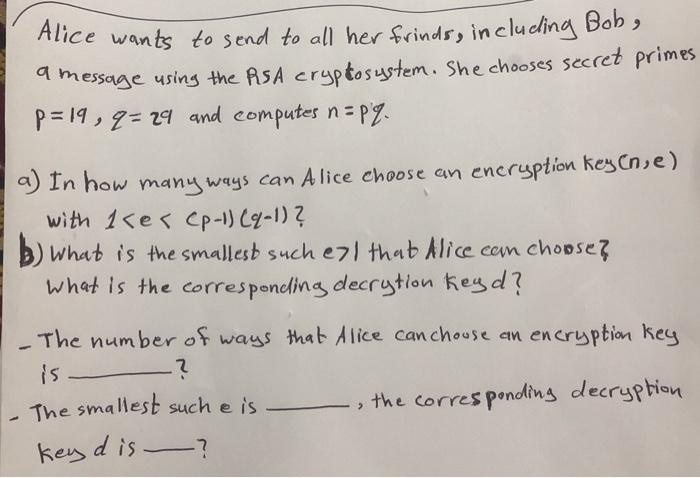 Alice wants to send to all her frinds, including Bob,
a message using the RSA cryptosustem. She chooses secret primes
p=19, q=29 and computes n=pq.
a) In how many ways can Alice choose an encryption key (n,e)
with 1<e<(p-1)(q-1)?
b) What is the smallest such e>1 that Alice can choose?
What is the corresponding decrytion key d?
- The number of ways that Alice can choose an encryption key
is ______?
- The smallest such e is ______, the corresponding decryption
key d is ___?